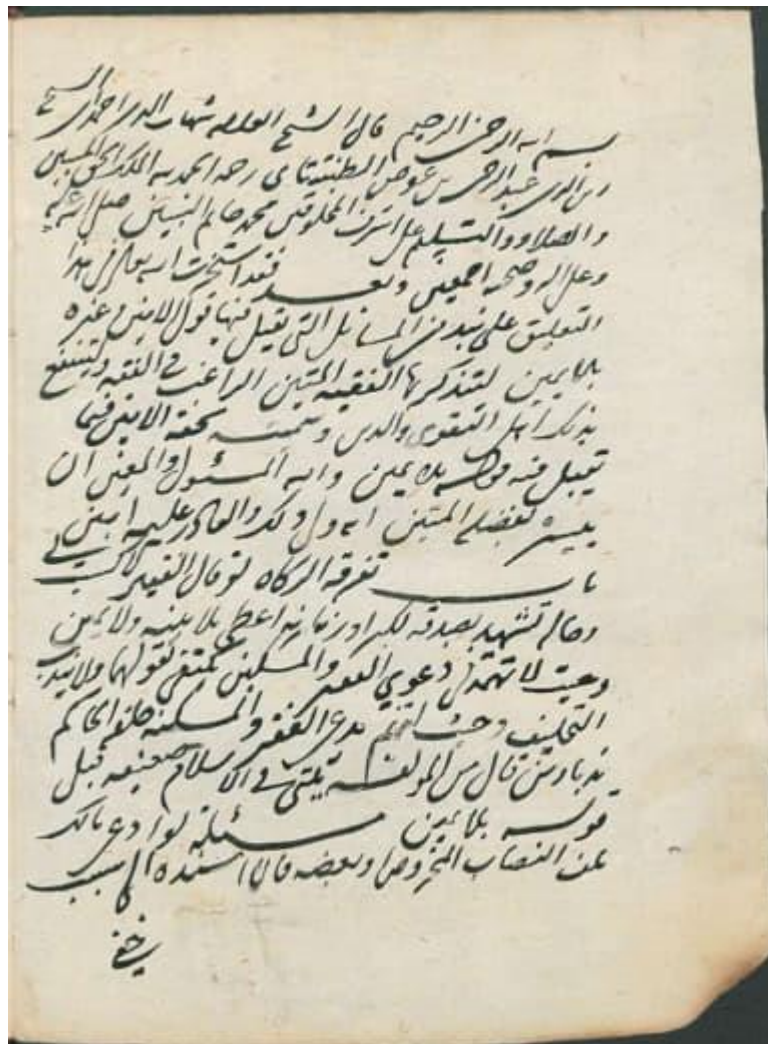 بسم الله الرحمن الرحيم قال الشيخ العلامة شهاب الدين احمد
عبد الرحمن بن عوض الطنتدتاى رحمه الحمد لله الملك الحق المبين
والصلاة والتسليم على اشرف المخلوقين محمد خاتم النبيين صلى الله عليه
وعلى اله وصحبه اجمعين وبعد فقد استخرت الله تعالى فى هذا
التعليق على نبذ من المسائل التى يقبل فيها قول الامين وغيره
بلا يمين لتذكرها الفقيه المتين الراغب فى الفقه ولينتفع
بذلك اهل التقوى والدين وسميته تحفة الامين فيما
يقبل فيه قوله بلا يمين والله المسئول والمعين ان
ييسره بفضله المتين انه ولى ذلك والقادر عليه امين
باب تفرقة الزكاه لو قال الفقير لا كسب لى
وحاله تشهد بصدقه لكبر او زمانه اعطى بلا بينه ولا يمين
وحيث لا تهمة فى دعوى الفقر والمسكين يكتفى بقولهما ولا يندب
التحليف وحيث اتهم مدعى الفقر والمسكنه حلفه الحاكم
ندبا ومن قال من المولفه نيتى فى الاسلام ضعيفه قبل
قوله بلا يمين مسئلة لو ادعى مالك
تلف النصاب المخروص او بعضه فان اسنده الى سبب
خفى